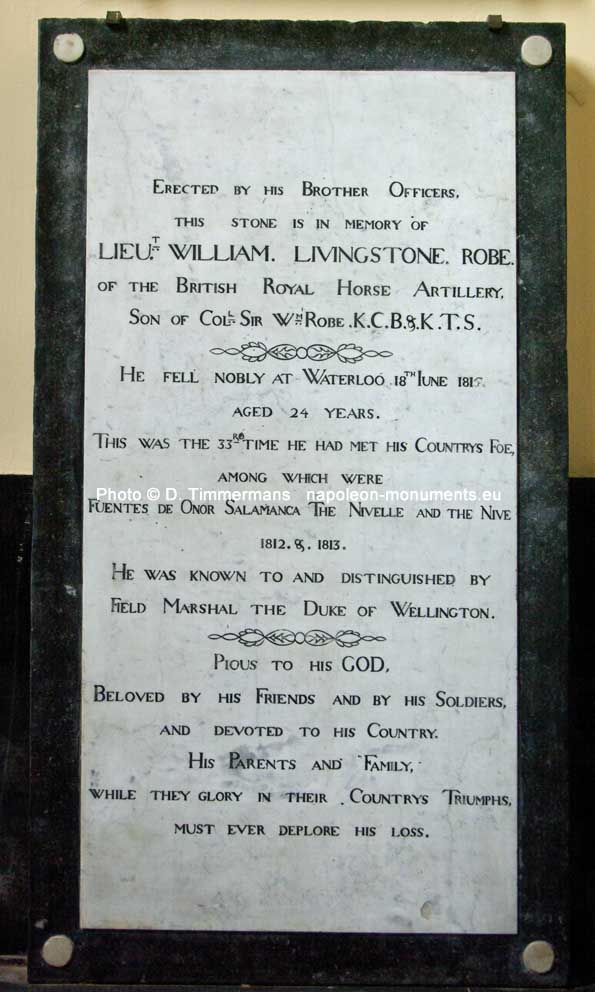 Erected by his Brother Officers,
this stone is in memory of
LIEUT. WILLIAM. LIVINGSTONE. ROBE.
of the British Royal Horse Artillery,
Son of Coll. Sir Wm. Robe .K.C.B. & .K.T.S.
He fell nobly at Waterloo 18TH June 1815.
aged 24 years.
This was the 33RD time he had met his Countrys Foe,
among which were
Photo © D. Timmermans napoleon-monuments.eu
Fuentes de Onor Salamanca The Nivelle and the Nive
1812. & . 1813.
He was known to and distinguished by
Field Marshal the Duke of Wellington.
Pious to his GOD,
Beloved by his Friends and by his Soldiers,
and devoted to his Country.
His Parents and Family,
while they glory in their Countrys Triumphs,
must ever deplore his loss.